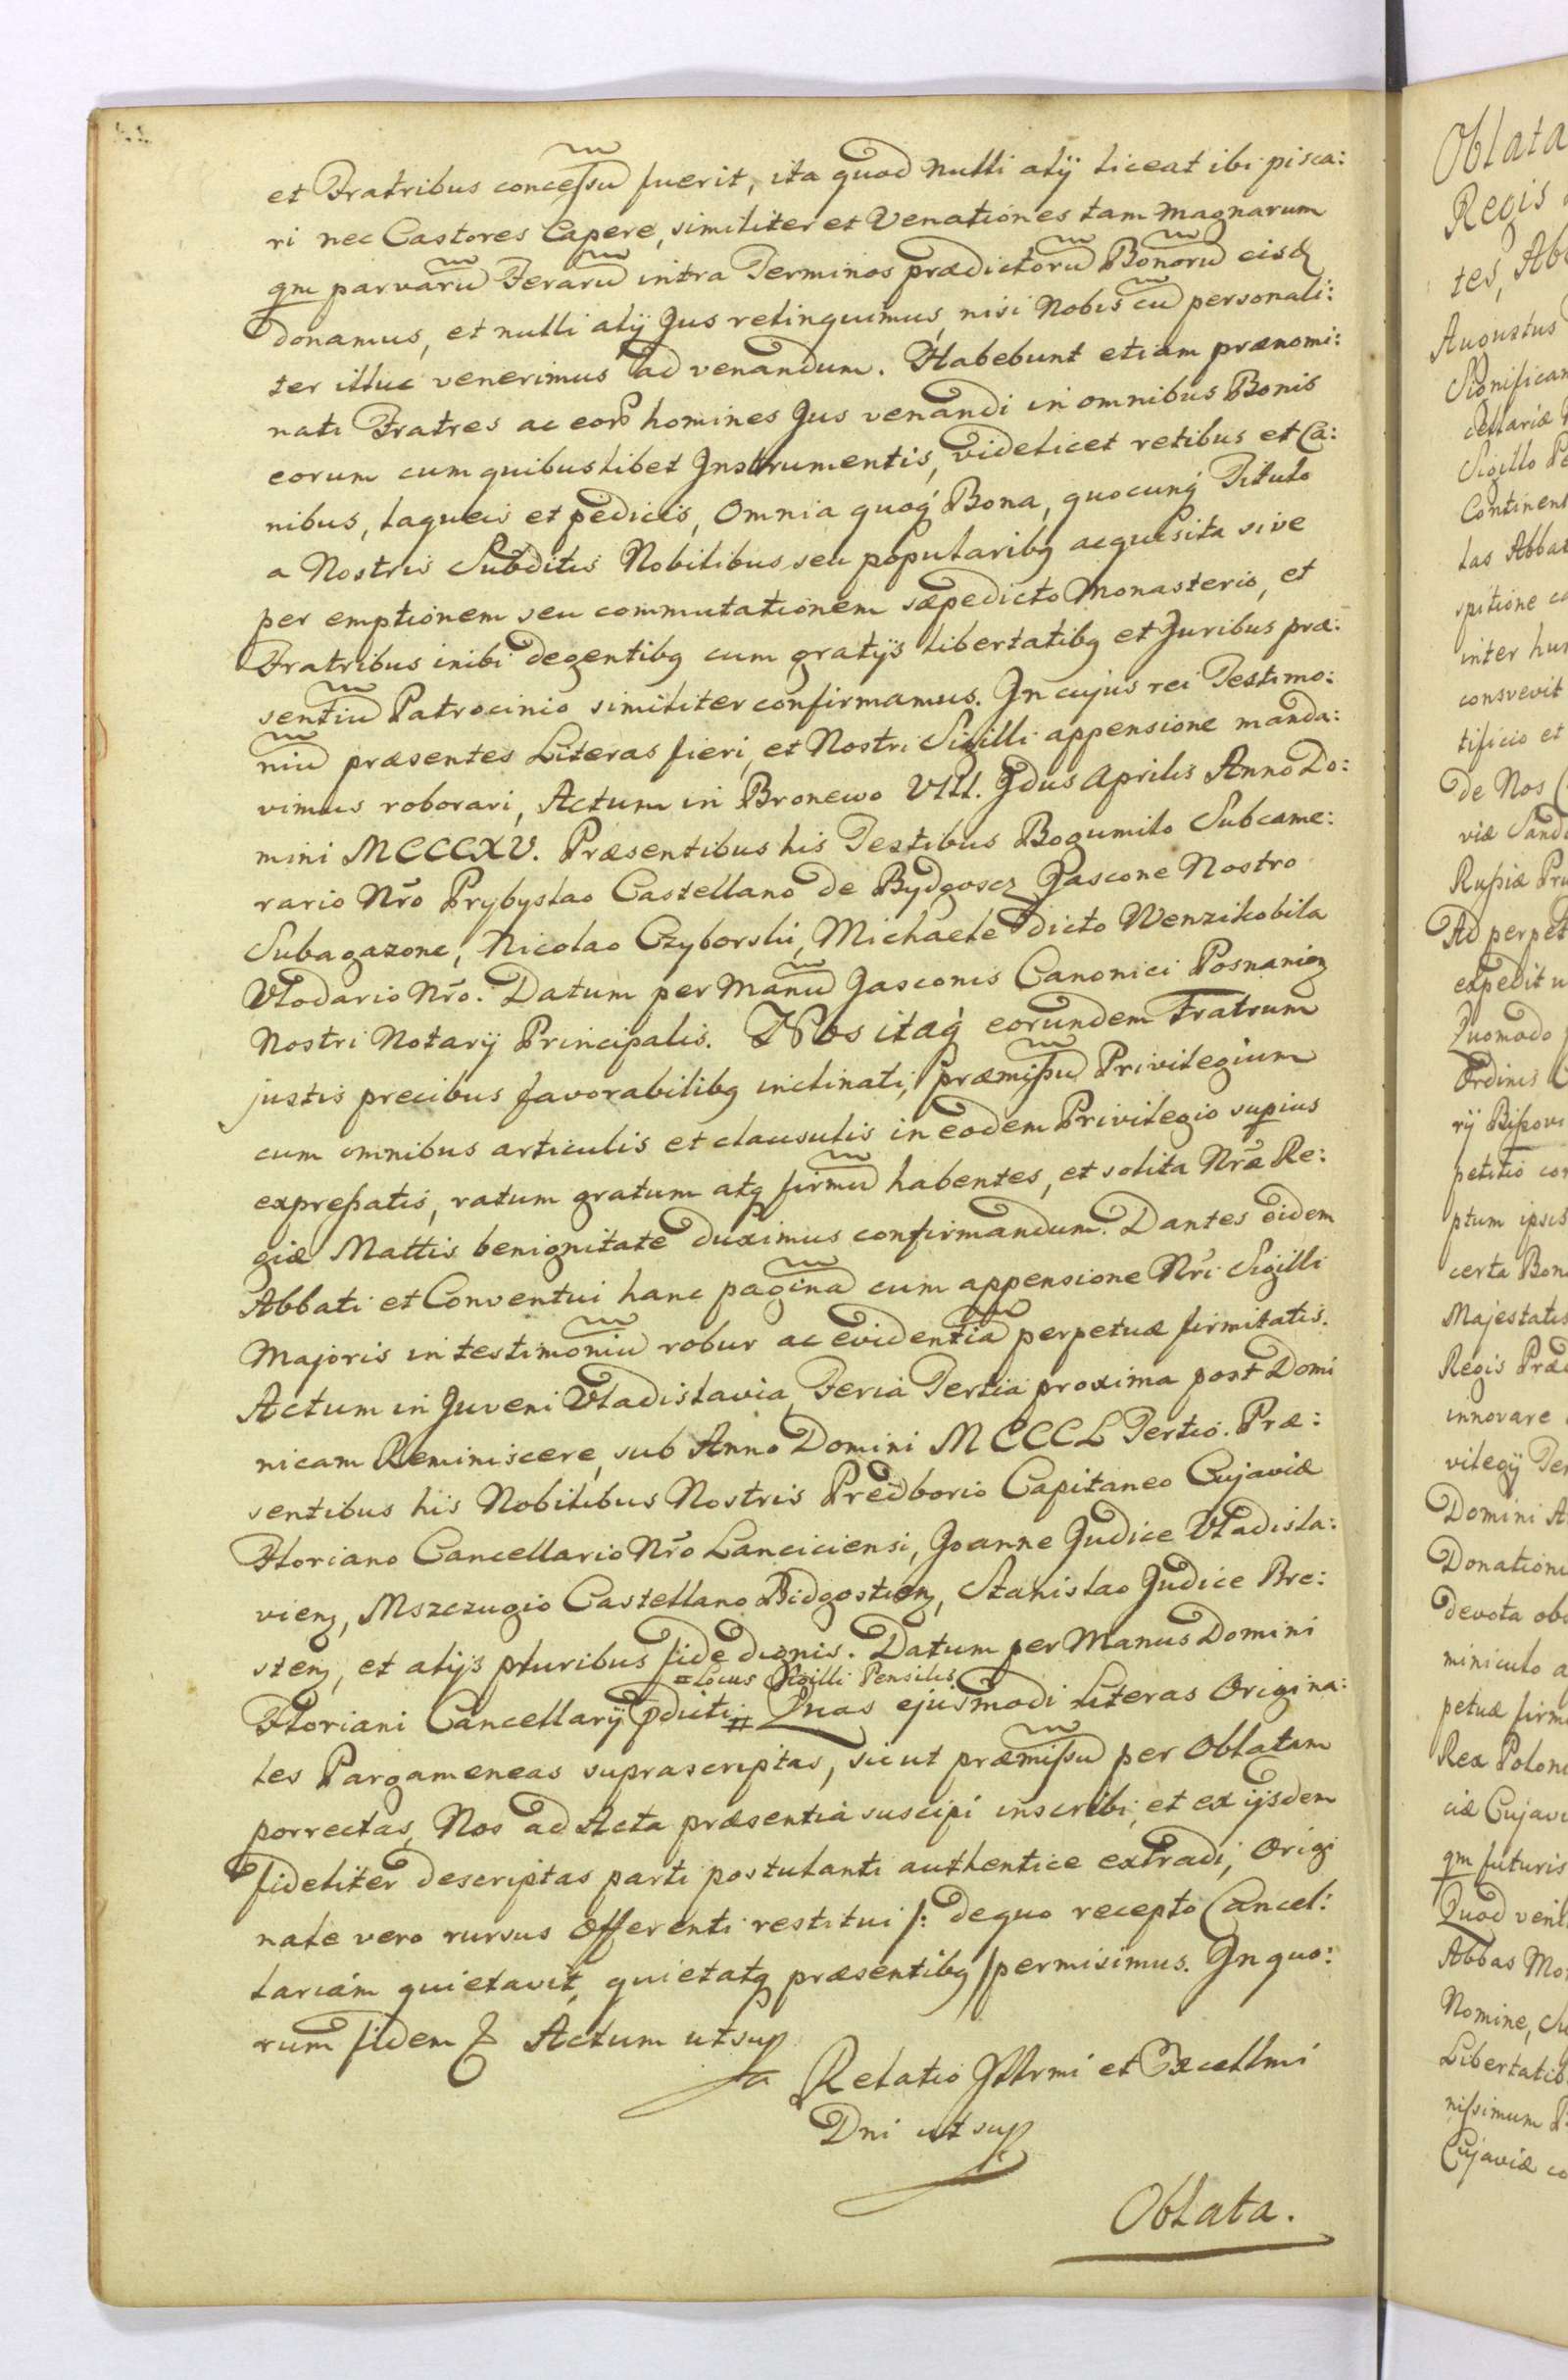 et Fratribus concessū fuerit, ita quod nulli alij liceat ibi pisca:
ri nec Castores Capere, similiter et Venationes tam magnarum
qm parvarū Ferarū intra Terminos prædictorū Bonorū eisd
donamus, et nulli alij Jus relinquimus, nisi Nobis cū personali:
ter illuc venerimus ad venandum. Habebunt etiam prænomi:
nati Fratres ac eorꝝ homines Jus venandi in omnibus Bonis
eorum cum quibuslibet Instrumentis, videlicet retibus et Ca:
nibus, laqueis et pedicis, Omnia quoq́ Bona, quocunq́ Titulo
a Nostris Subditis Nobilibus seu popularibq acquisita sive
per emptionem seu commutationem sæpedicto Monasterio, et
Fratribus inibi degentibq cum gratijs libertatibq et Juribus præ:
sentiū Patrocinio similiter confirmamus. In cujus rei Testimo:
niū præsentes Literas fieri, et Nostri Sigilli appensione manda:
vimus roborari, Actum in Bronewo VIII. Idus Aprilis Anno Do:
mini MCCCXV. Præsentibus his Testibus Bogumilo Subcame:
rario Nr̃o Prybyslao Castellano de Bydgoscz Jascone Nostro
Subagazone, Nicolao Czyborski, Michaele dicto Wenzikobila
Vlodario Nr̃o. Datum per Manū Jasconis Canonici Posnanien
Nostri Notarij Principalis. Nos itaq́ eorundem Fratrum
justis precibus favorabilibq inclinati, præmissū Privilegium
cum omnibus articulis et clausulis in eodem Privilegio supius
expressatis, ratum gratum atq firmū habentes, et solita Nr̃a Re:
giæ Mattis benignitate duximus confirmandum. Dantes eidem
Abbati et Conventui hanc paginā cum appensione Nr̃i Sigilli
Majoris in testimoniū robur ac evidentiā perpetuæ firmitatis.
Actum in Juveni Vladislavia Feria Tertia proxima post Domi
nicam Reminiscere, sub Anno Domini MCCCL Tertio. Præ:
sentibus his Nobilibus Nostris Predborio Capitaneo Cujaviæ
Floriano Cancellario Nr̃o Lanciciensi, Joanne Judice Vladisla:
vien, Mszczugio Castellano Bidgostien, Stanislao Judice Bre:
sten, et alijs pluribus fide dignis. Datum per Manus Domini
=Locus Sigilli Pensilis
Floriani Cancellarij pdicti # Quas ejusmodi Literas Origina:
les Pargameneas suprascriptas, sicut præmissū per Oblatam
porrectas, Nos ad Acta præsentia suscipi inscribi, et ex ijsdem
fideliter descriptas parti postulanti authentice extradi, Origi
nale vero rursus Offerenti restitui /: de quo recepto Cancel:
lariam quietavit, quietatq præsentibq / permisimus. In quo:
rum fidem & Actum ut sup
Relatio Illrmi et Excellmi
Dni ut sup
Oblata.
Oblata
Regis
tes, Abb
Augustus
Significam
cellariæ
Sigillo Pe
Continent
las Abbat
spitione ca
inter hu
consvevit
tificio et
de Nos
viæ Sand
Russiæ Pru
Ad perpet
expedit u
Quomodo
Ordinis C
rij Bissovi
petitio con
ptum ipsis
certa Bon
Majestatis
Regis Præd
innovare
vilegij Ten
Domini A
Donationi
devota ob
miniculo a
petuæ firm
Rex Poloni
ciæ Cujavi
qm futuris
Quod veni
Abbas Mo
Nomine, Su
Libertatib
nissimum P
Cujaviæ co